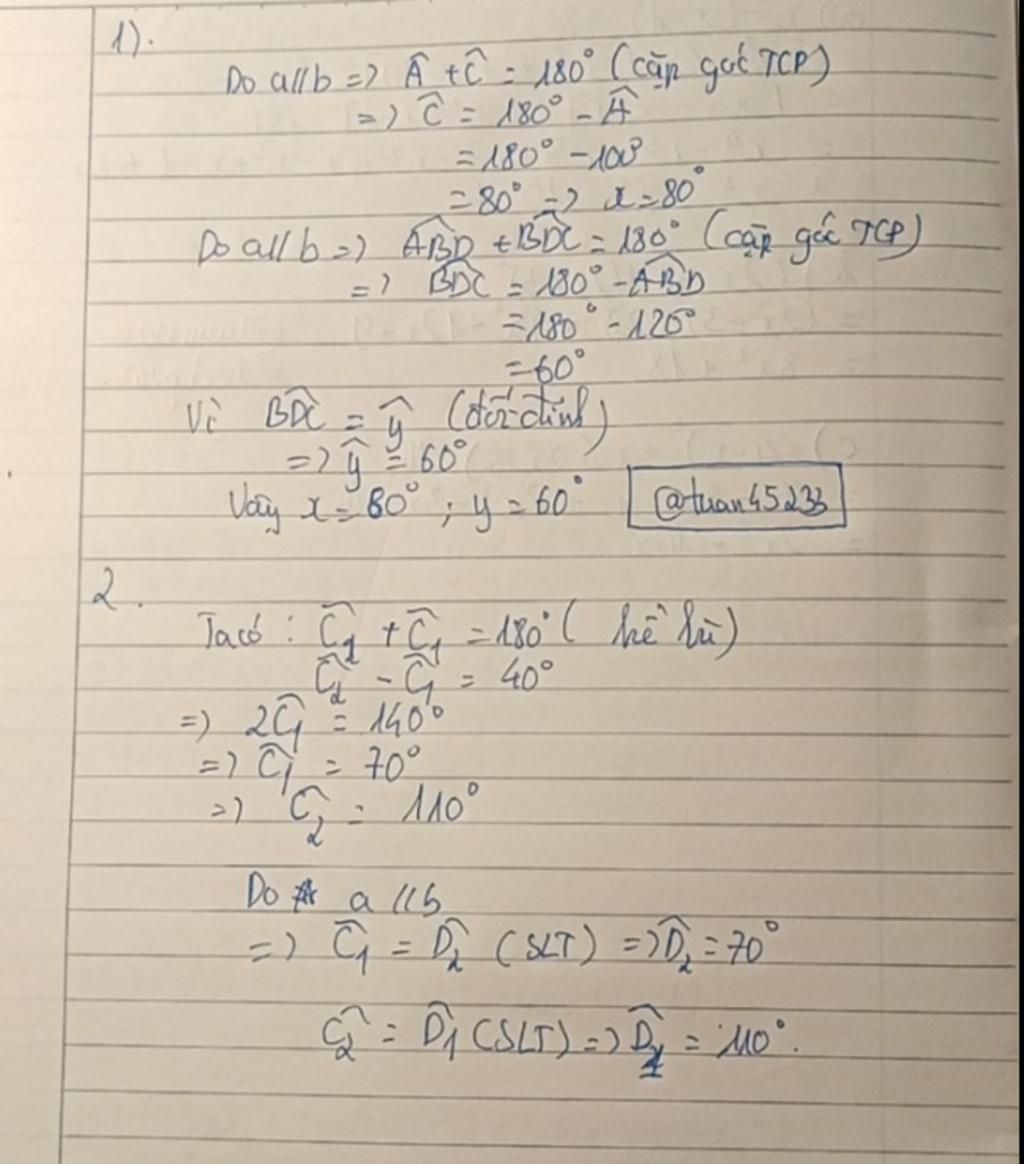 1).
Do a//b => Â + Ĉ = 180° (cặp góc TCP)
=> Ĉ = 180° - Â
= 180° - 100°
= 80° => x = 80°
Do a//b => \widehat{ABD} + \widehat{BDC} = 180° (cặp góc TCP)
=> \widehat{BDC} = 180° - \widehat{ABD}
= 180° - 120°
= 60°
Vì \widehat{BDC} = ŷ (đối đỉnh)
=> ŷ = 60°
Vậy x = 80° ; y = 60°
@tuan45233
2.
Ta có : Ĉ₂ + Ĉ₁ = 180° ( kề bù)
Ĉ₂ - Ĉ₁ = 40°
=> 2Ĉ₁ = 140°
=> Ĉ₁ = 70°
=> Ĉ₂ = 110°
Do a //b
=> Ĉ₁ = D̂₂ (SLT) => D̂₂ = 70°
Ĉ₂ = D̂₁ (SLT) => D̂₁ = 110°.